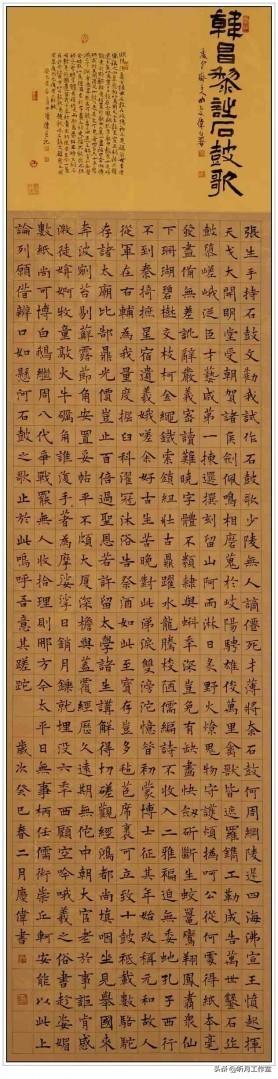 韓昌黎詠石鼓歌
張生手持石鼓文勸我試作石鼓歌少陵無人謫僊死才薄將奈石鼓何周綱陵遲四海沸宣王憤起揮
天戈大開明堂受朝賀諸侯劍佩鳴相磨蒐於岐陽騁雄俊萬里禽獸皆遮羅鐫工勒成告萬世鑿石作
鼓隳嵯峨從臣才藝咸第一揀選撰刻留山阿雨淋日炙野火燎鬼物守護煩撝呵公從何處得紙本毫
髮盡備無差訛辭嚴義密讀難曉字體不類隸與蝌年深豈免有缺畫快劍斫斷生蛟鼉鸞翱鳳翥衆仙
下珊瑚碧樹交枝柯金繩鐵索鎖鈕壯古鼎躍水龍騰梭陋儒編詩不收入二雅褊迫無委蛇孔子西行
不到秦掎摭星宿遺羲娥嗟余好古生苦晚對此涕淚雙滂沱憶昔初蒙博士徵其年始改稱元和故人
從軍在右輔為我量度掘臼科濯冠沐浴告祭酒如此至寶存豈多氈苞席裹可立致十鼓祗載數駱駝
存諸太廟比郜鼎光價豈止百倍過聖恩若許留太學諸生講解得切磋觀經鴻都尚填咽坐見舉國來
奔波剜苔剔蘚露節角安置妥帖平不頗大厦深檐與蓋覆經歷久遠期無佗中朝大官老於事詎肯感
激徒媕婀牧童敲火牛礪角誰復手著為摩挲日銷月鑠就埋没六年西顧空吟哦羲之俗書趁姿媚
數紙尚可博白鵝繼周八代爭戰罷無人收拾理則那方今太平日無事柄任儒術崇丘軻安能以此上
論列願借辯口如懸河石鼓之歌止於此嗚呼吾意其蹉跎 歲次癸巳春二月慶偉書
头条 @昕月工作室